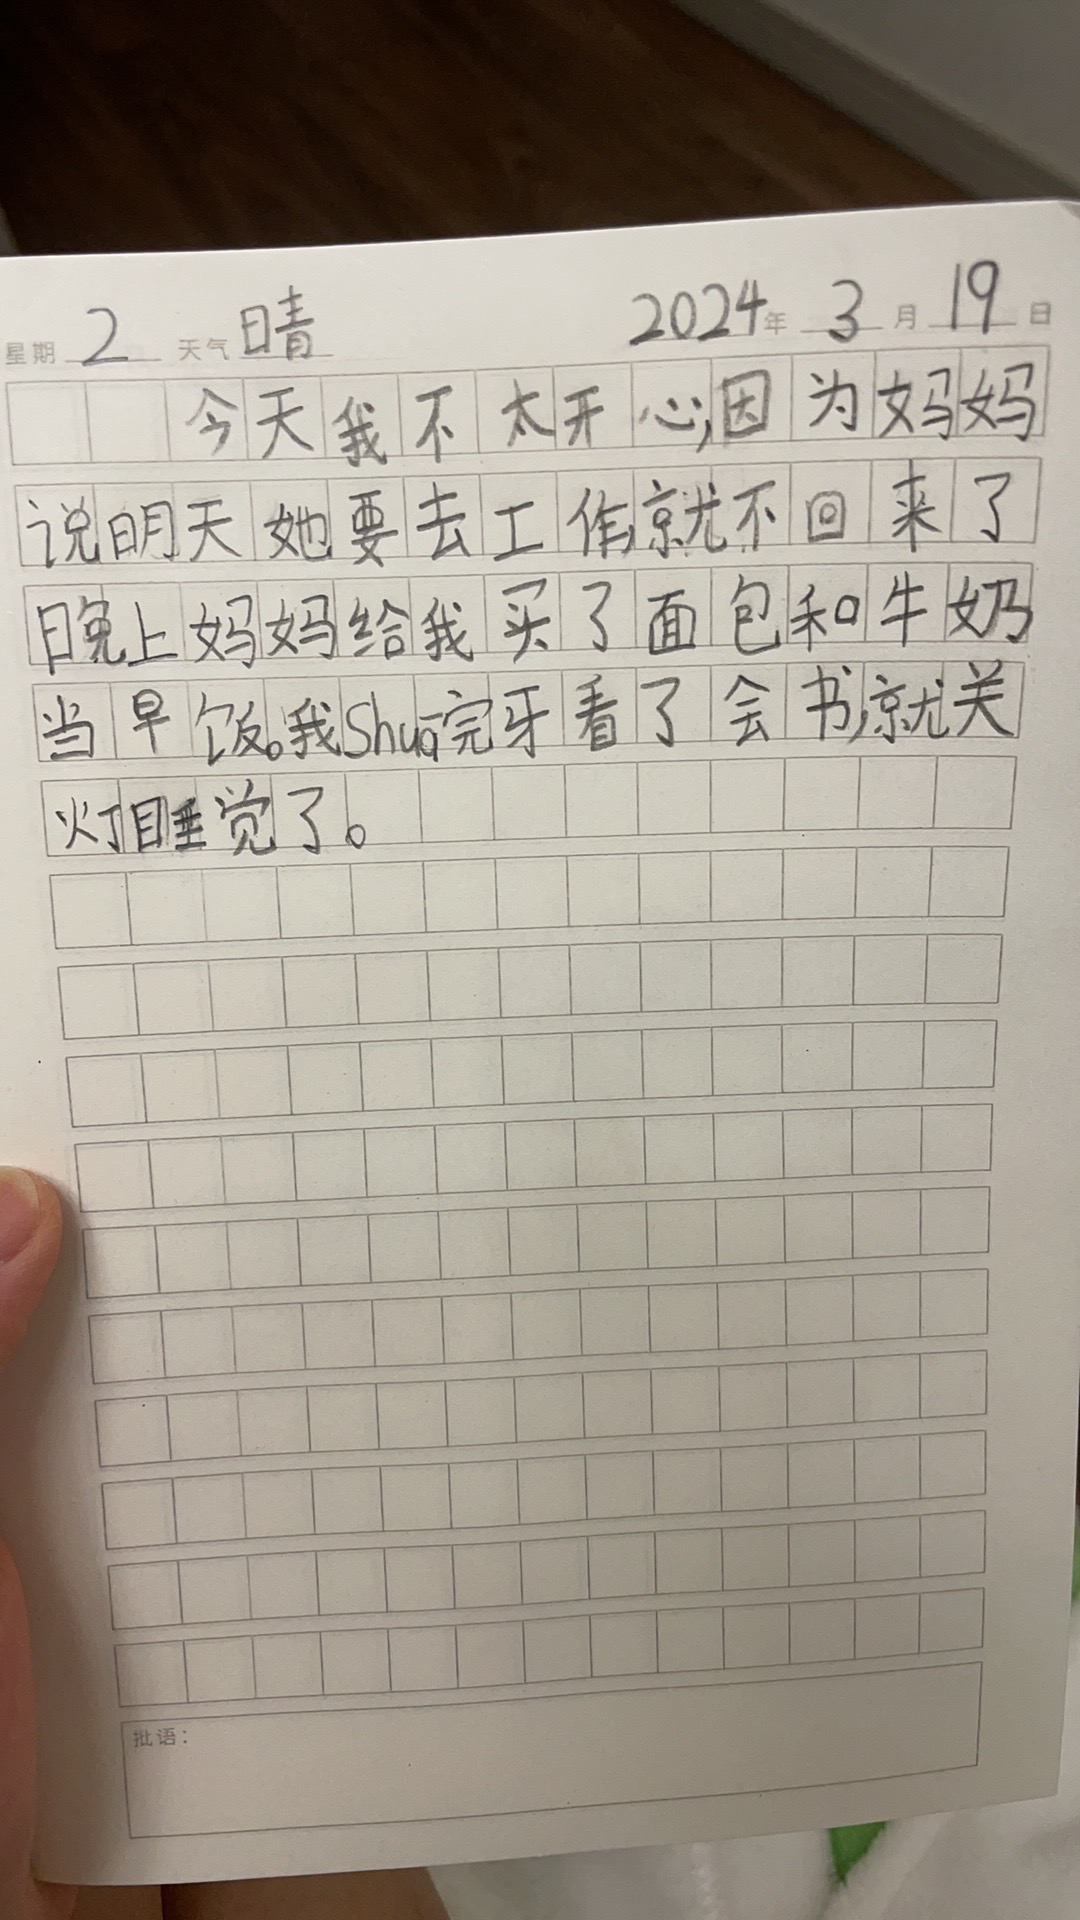 星期 2 天气 晴 2024年 3 月 19 日
今天我不太开心,因为妈妈
说明天她要去工作,就不回来了
晚上妈妈给我买了面包和牛奶
当早饭。我Shuā完牙看了会书,就关
灯睡觉了。
批语: